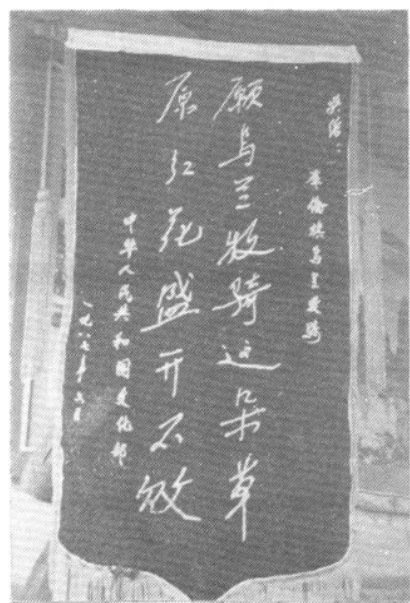 奖给：库伦旗乌兰牧骑
愿乌兰牧骑这朵草
原红花盛开不败
中华人民共和国文化部
一九八七年 月